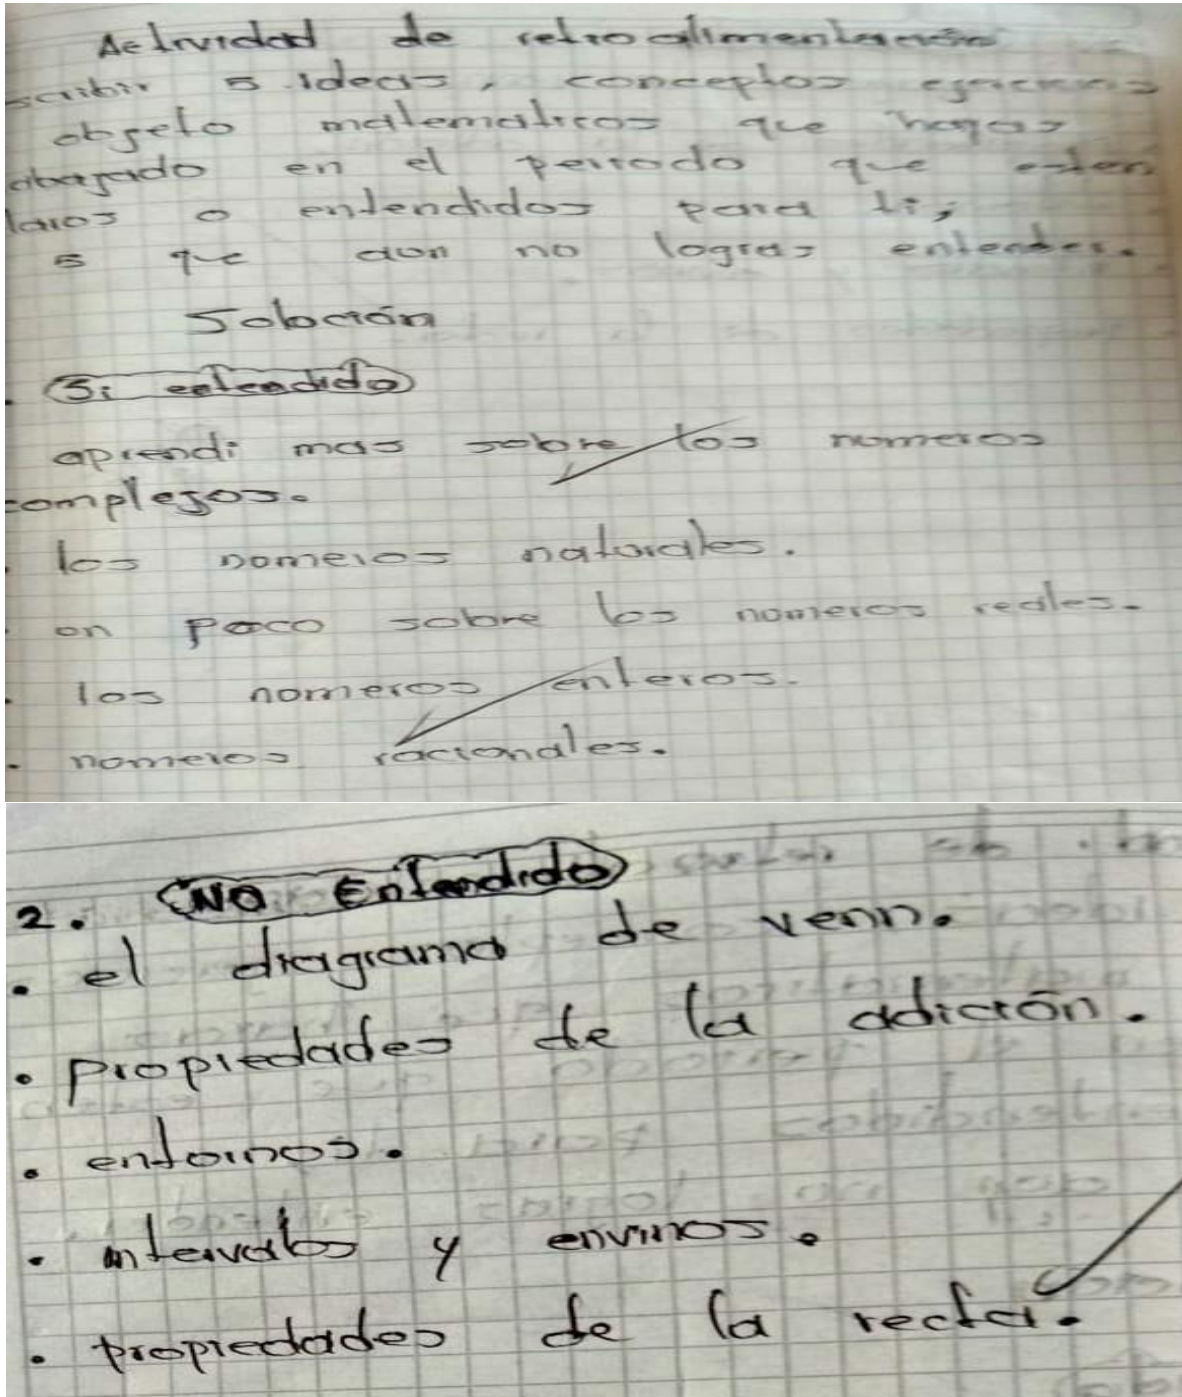 Actividad de retroalimentación
scribir 5 ideas, conceptos ejercicios
objeto matematicos que hayas
abajado en el periodo que esten
laros o entendidos para ti,
5 que aun no logras entender.
Soloción
Si entendido
aprendi mas sobre los nomeros
complejos.
los nomeros naturales.
on poco sobre los nomeros reales.
los nomeros enteros.
nomeros racionales.
2. NO Entendido
• el diagrama de venn.
• propiedades de la adición.
• entornos.
• intervalos y
• propiedades de la recta.